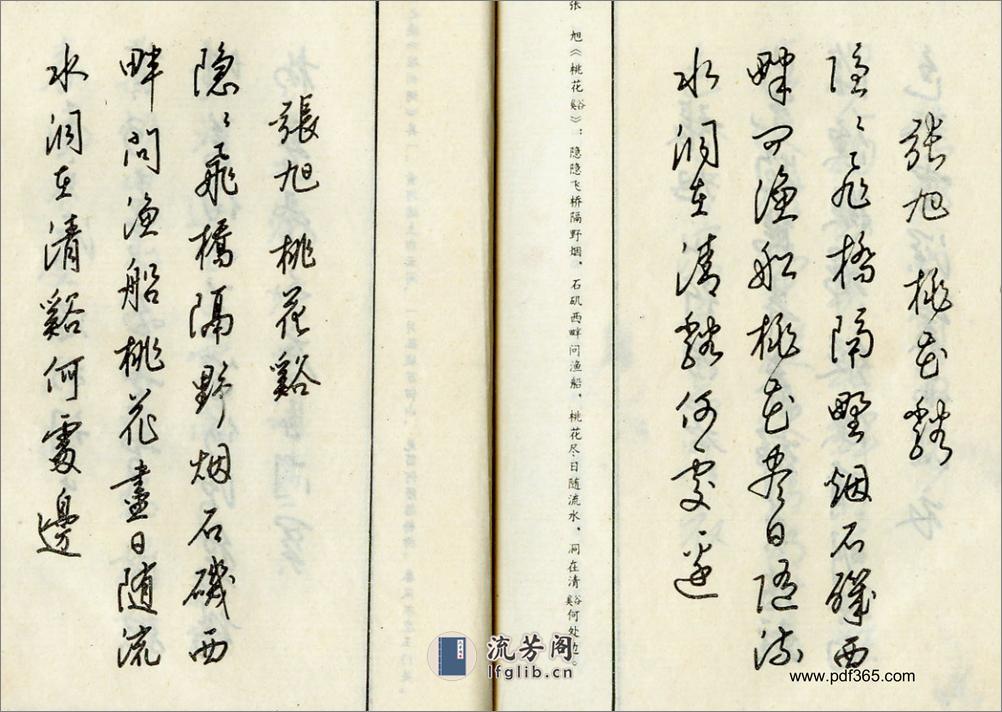 張旭桃花谿
隱々飛橋隔野烟石磯西
畔問漁船桃花盡日隨流
水洞在清谿何處邊
张 旭《桃花谿》：隐隐飞桥隔野烟，石矶西畔问渔船，桃花尽日随流水，洞在清谿何处边。
張旭桃花谿
隐々飛橋隔野烟石磯西
畔問渔船桃花盡日随流
水洞在清谿何處邊
流芳阁
lfglib.cn
www.pdf365.com